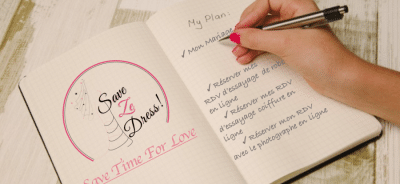 Save
Ze
Dress!
Save Time For Love
My Plan:
✓ Mon Mariage
✓ Réserver mes
RDV d'essayage de robe
en ligne
✓ Réserver mes RDV
d'essayage coiffure en
ligne
✓ Réserver mon RDV
avec le photographe en ligne